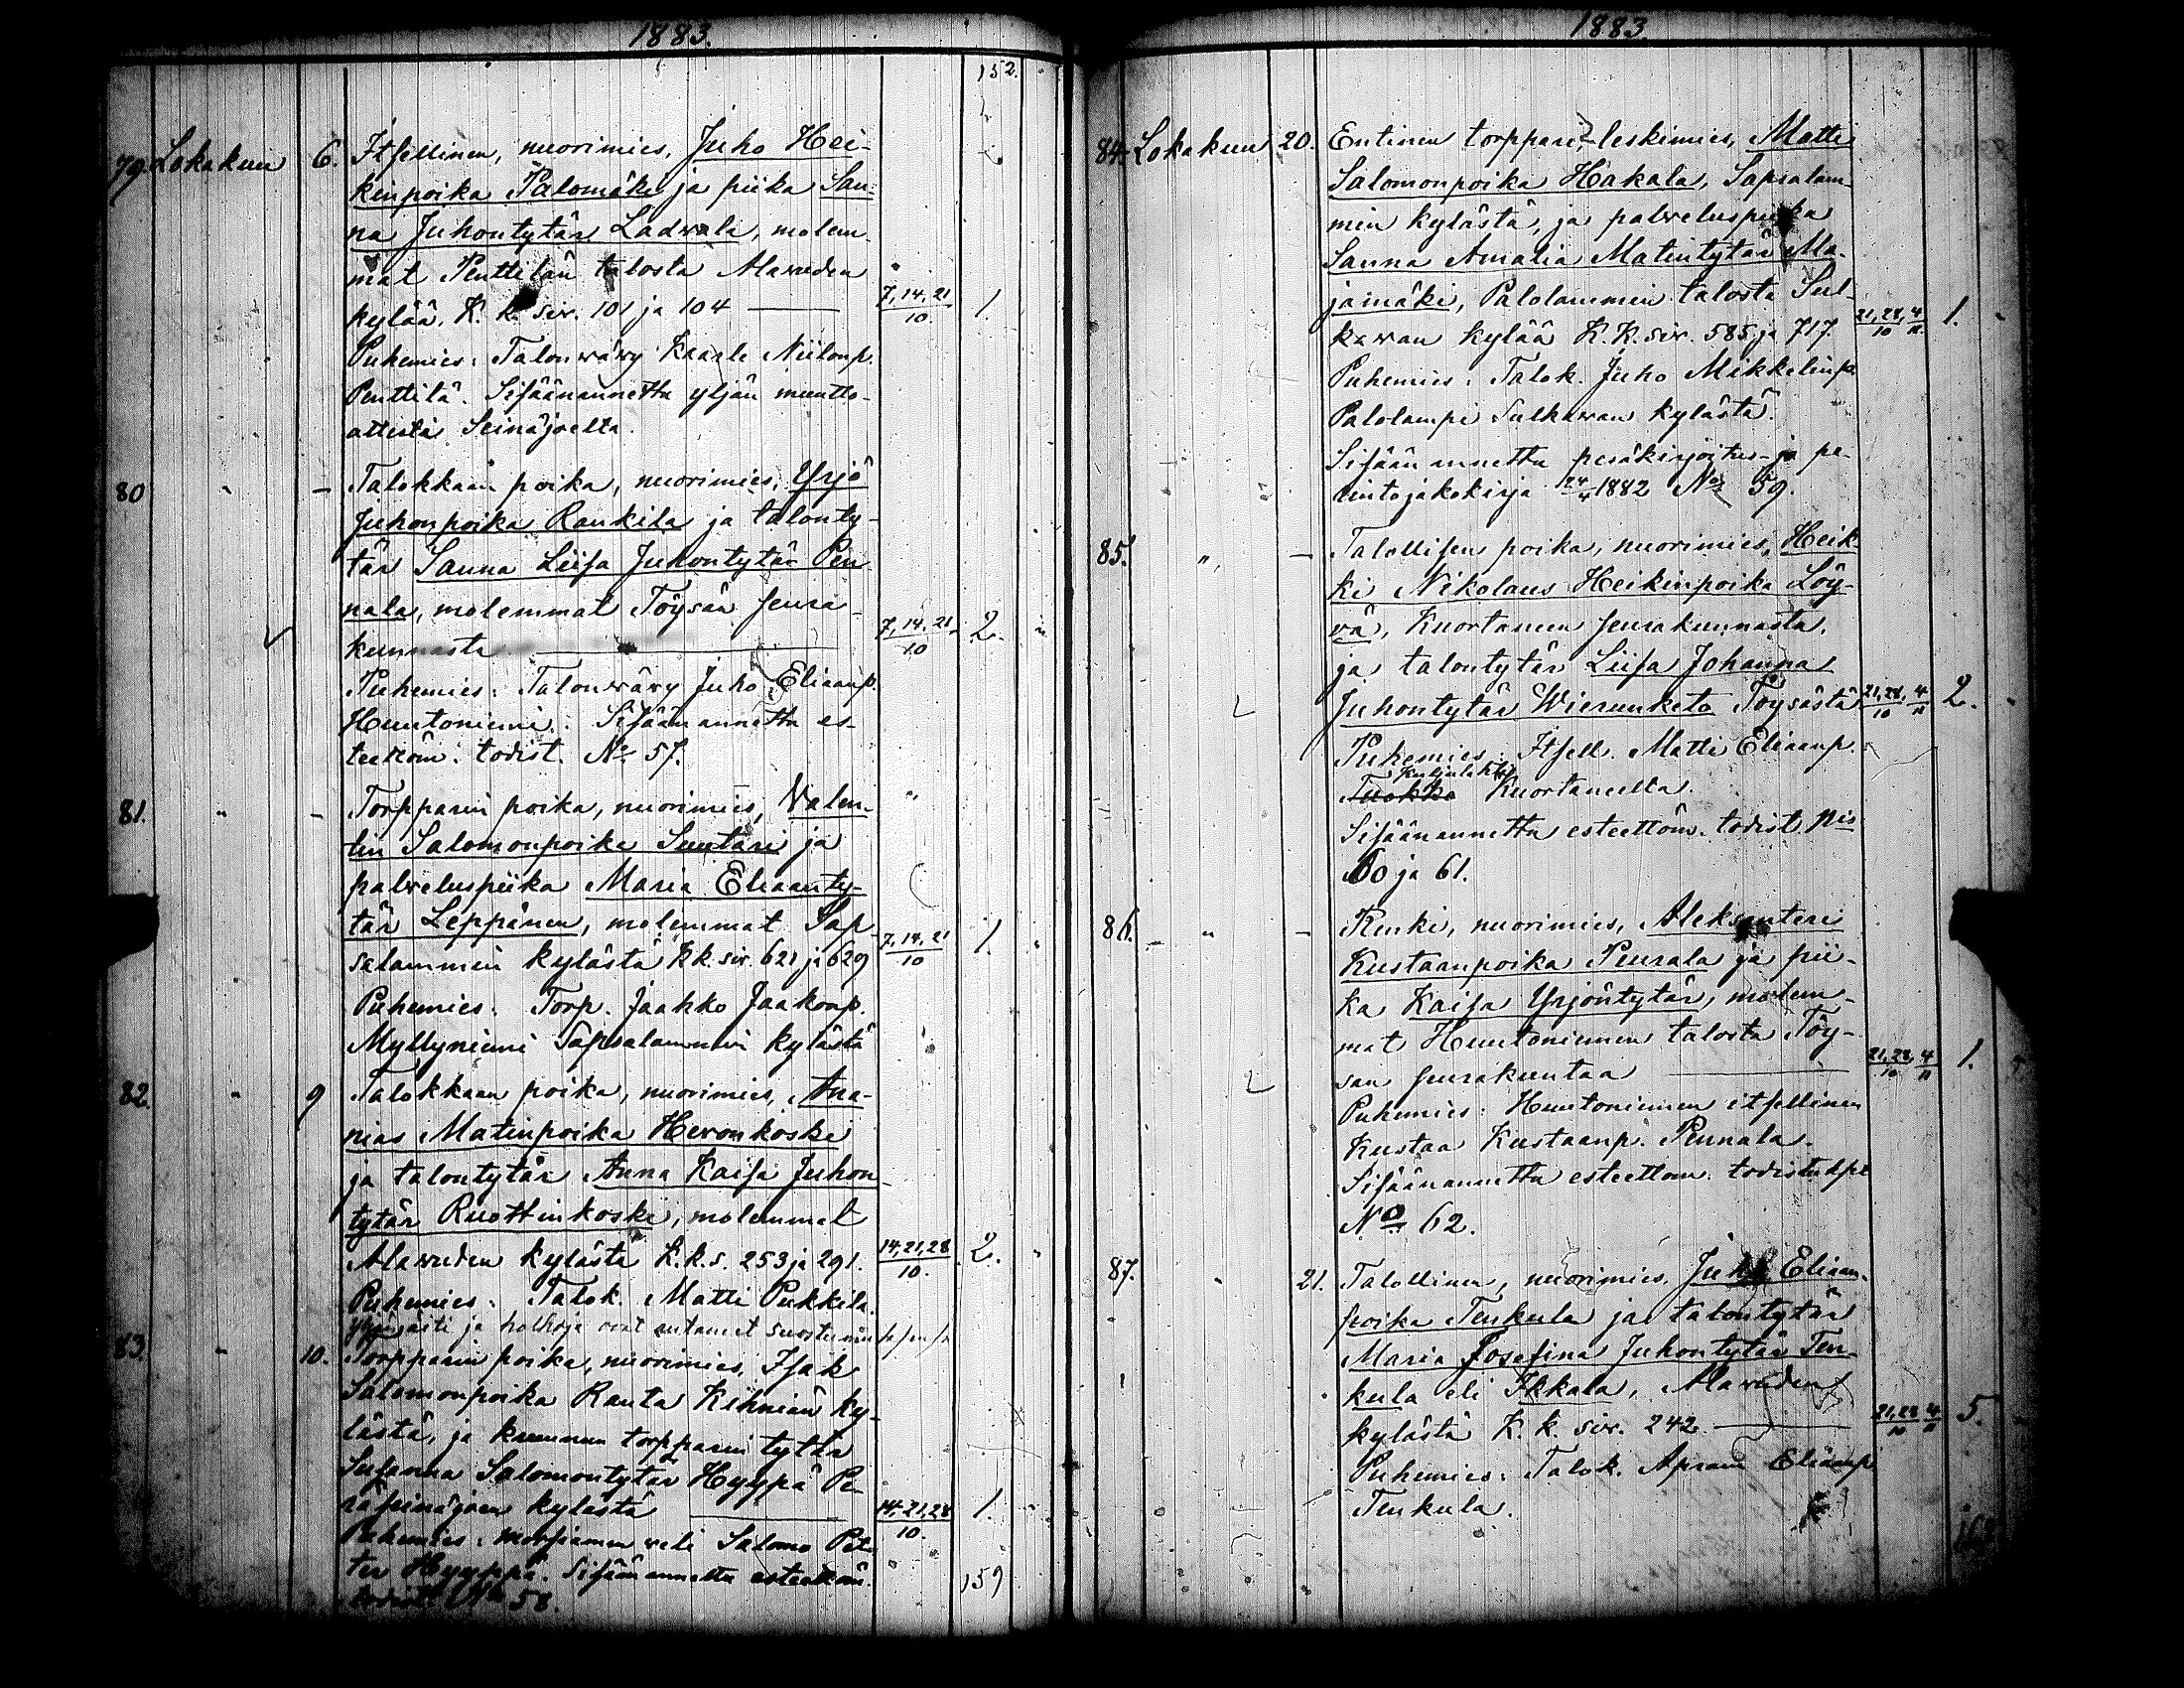 1883.
152.
79. Lokakuun 6. Itsellinen, nuorimies, Juho Hei-
kinpoika Palomäki ja piika San-
na Juhontytär Ladwala, molem-
mat Penttilän talosta Alawuden
kylää. K. k. siv. 101 ja 104 — 7, 14, 21/10. 1.
Puhemies: Talonwäwy Kaarle Niilonp.
Penttilä. Sisäänannettu yljän muutto-
attesti Seinäjoelta.
80 " – Talokkaan poika, nuorimies, Yrjö
Juhonpoika Rankila ja talonty-
tär Sanna Liisa Juhontytär Pen
nala, molemmat Töysän seura-
kunnasta — 7, 14, 21/10 2.
Puhemies: Talonwäwy Juho Eliaanp.
Huntoniemi. Sisäänannettu es-
teettöm. todist. No 57.
81. " – Torpparin poika, nuorimies, Valen-
tin Salomonpoika Suutari ja
palveluspiika Maria Eliaanty-
tär Leppänen, molemmat Sap-
salammin kylästä K.k. siv. 621 ja 629 7, 14, 21/10 1.
Puhemies: Torp. Jaakko Jaakonp.
Myllyniemi Sapsalammin kylästä
82. " 9 Talokkaan poika, nuorimies, Ana-
nias Matinpoika Heronkoski
ja talontytär Anna Kaisa Juhon
tytär Ruottinkoski, molemmat
Alawuden kylästä K.k.s. 253 ja 291. 14, 21, 28/10. 2.
Puhemies: Talok. Matti Pukkila.
yljän äiti ja holhoja ovat antaneet suostumu
83. " 10. Torpparin poika, nuorimies, Isak
Salomonpoika Ranta Kihniän ky-
lästä, ja kruunun torpparin tytär
Susanna Salomontytär Hyyppä Pe-
räseinäjoen kylästä — 14, 21, 28/10. 1.
Puhemies: morsiamen veli Salomo Pet-
ter Hyyppä. Sisäänannettu esteettöm.
todist. No 58.
159
1883.
84. Lokakuun 20. Entinen torppari, leskimies, Matti
Salomonpoika Hakala, Sapsalam-
min kylästä, ja palveluspiika
Sanna Amalia Matintytär Ma-
jamäki, Palolammin talosta Sul-
kawan kylää K.K. siv. 585 ja 717. 21, 28/10, 4/11 1.
Puhemies: Talok. Juho Mikkelinp.
Palolampi Sulkawan kylästä.
Sisään annettu pesäkirjoitus- ja pe-
rintöjakokirja 1882 No 59.
85. " – Talollisen poika, nuorimies, Heik-
ki Nikolaus Heikinpoika Löy-
vä, Kuortaneen seurakunnasta,
ja talontytär Liisa Johanna
Juhontytär Wierunketo Töysästä 21, 28/10, 4/11 2.
Puhemies: Itsell. Matti Eliaanp.
Tuokko Kuortaneelta.
Sisäänannettu esteettöm. todist. nis
60 ja 61.
86. " – Renki, nuorimies, Aleksanteri
Kustaanpoika Peurala ja pii-
ka Kaisa Yrjöntytär, molem-
mat Huntoniemen talosta Töy-
sän seurakuntaa — 21, 28/10, 4/11 1.
Puhemies: Huntoniemen itsellinen
Kustaa Kustaanp. Pennala.
Sisäänannettu esteettöm. todistukset
No 62.
87. " 21. Talollinen, nuorimies, Juho Eliaan-
poika Tenkula ja talontytär
Maria Josefina Juhontytär Ten-
kula eli Ikkala, Alawuden
kylästä K. k. siv. 242 — 21, 28/10, 4/11 5.
Puhemies: Talok. Apram Eliaanp.
Tenkula.